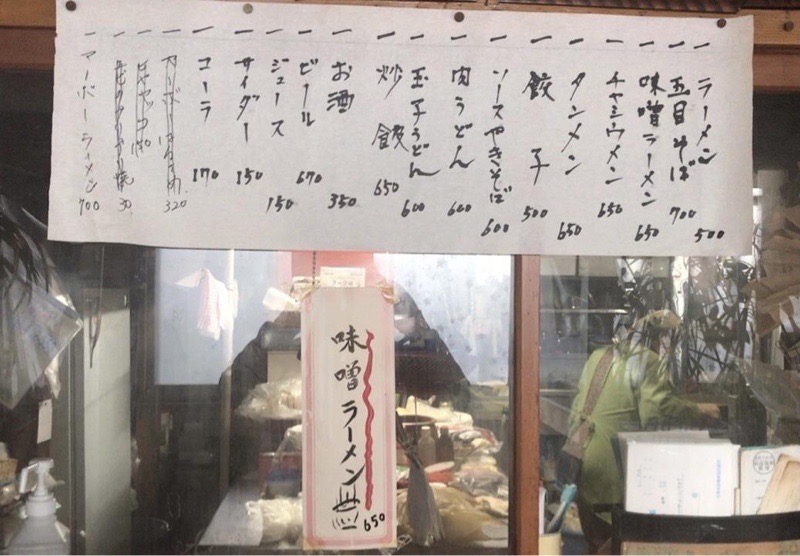 一 ラーメン 500
一 五目そば 700
一 味噌ラーメン 650
一 チャシウメン 650
一 タンメン 650
一 餃子 500
一 ソースやきそば 600
一 肉うどん 600
一 玉子うどん 600
一 炒飯 650
一 お酒 350
一 ビール 670
一 ジュース 150
一 サイダー 150
一 コーラ 170
320
30
一 マーボーラーメン 700
味噌ラーメン
650